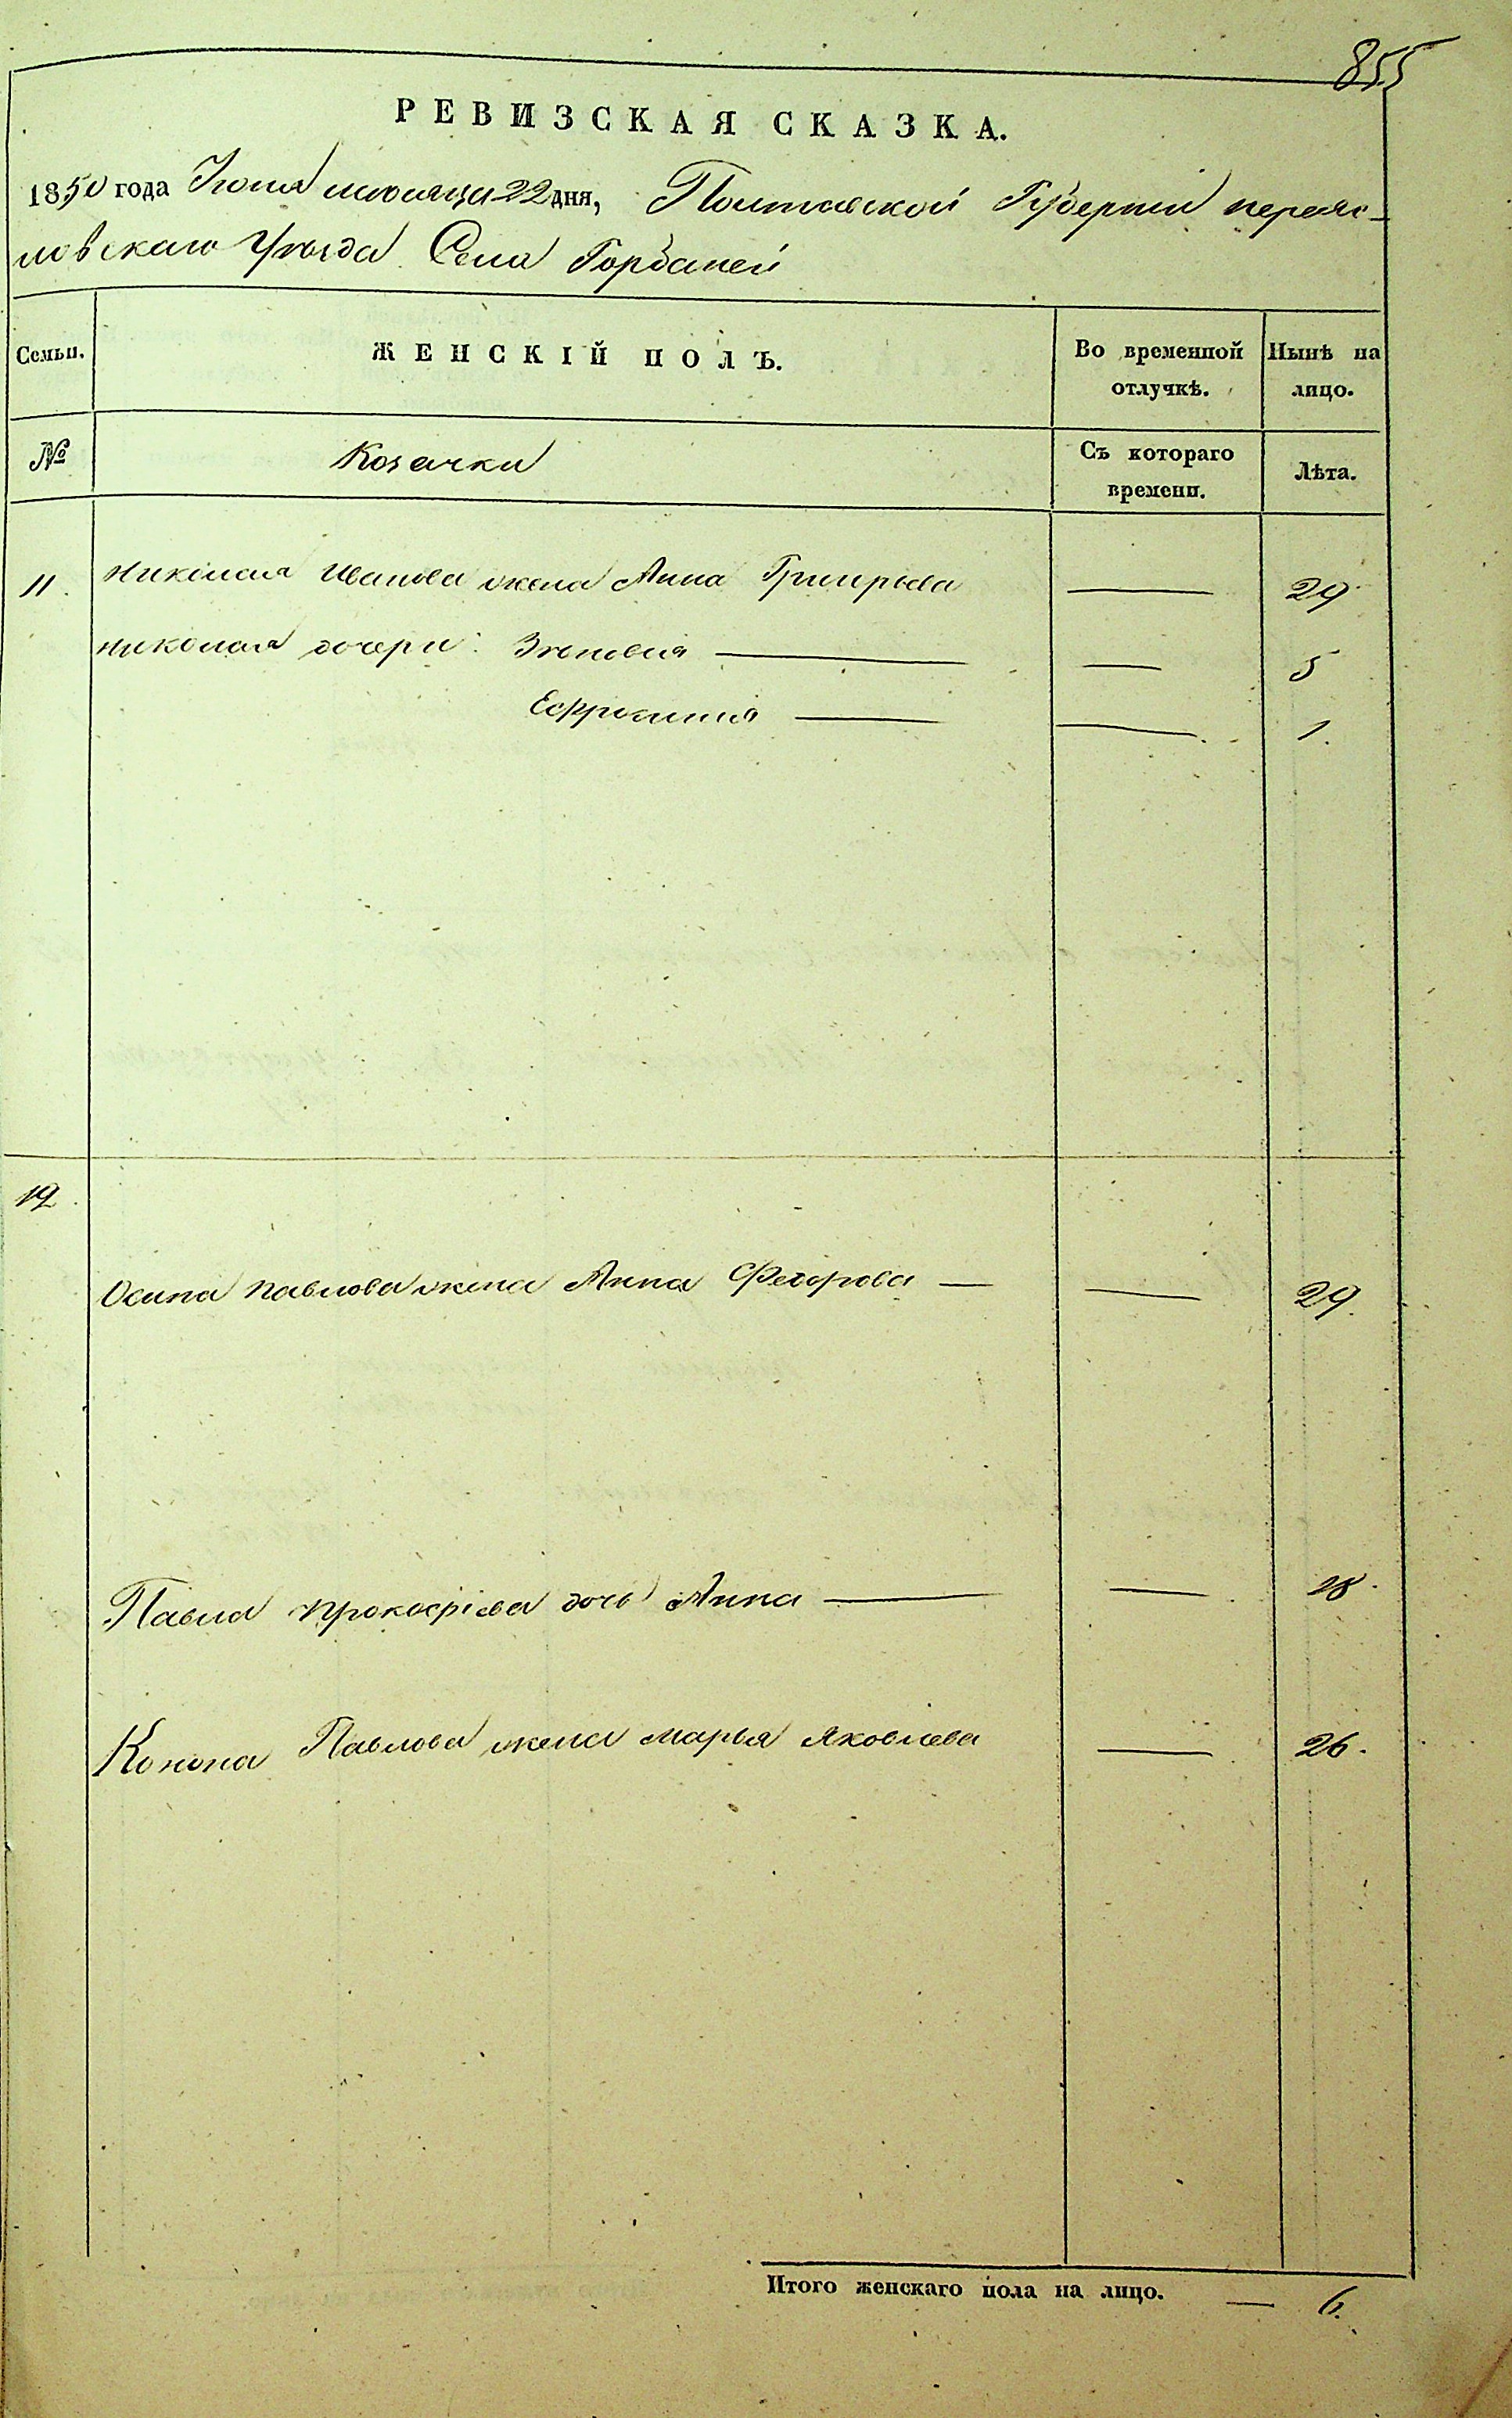 855
РЕВИЗСКАЯ СКАЗКА.
1850 года Іюня месяца 22 дня, Полтавской Губерніи переяс-
ловскаго Уѣзда Села Горбаней
Семьи.
ЖЕНСКІЙ ПОЛЪ.
Во временной отлучкѣ.
Нынѣ на лицо.
№
Козачки
Съ котораго времени.
Лѣта.
11. Николая Иванова жена Анна Григорьева — 29
Николая дочери: Зѣновія — — 5
Ефросинія — — 1.
12
Осипа Павлова жена Анна Федорова — — 29.
Павла Прокофіева дочь Анна — — 18.
Конона Павлова жена Марья Яковлева — 26.
Итого женскаго пола на лицо. — 6.